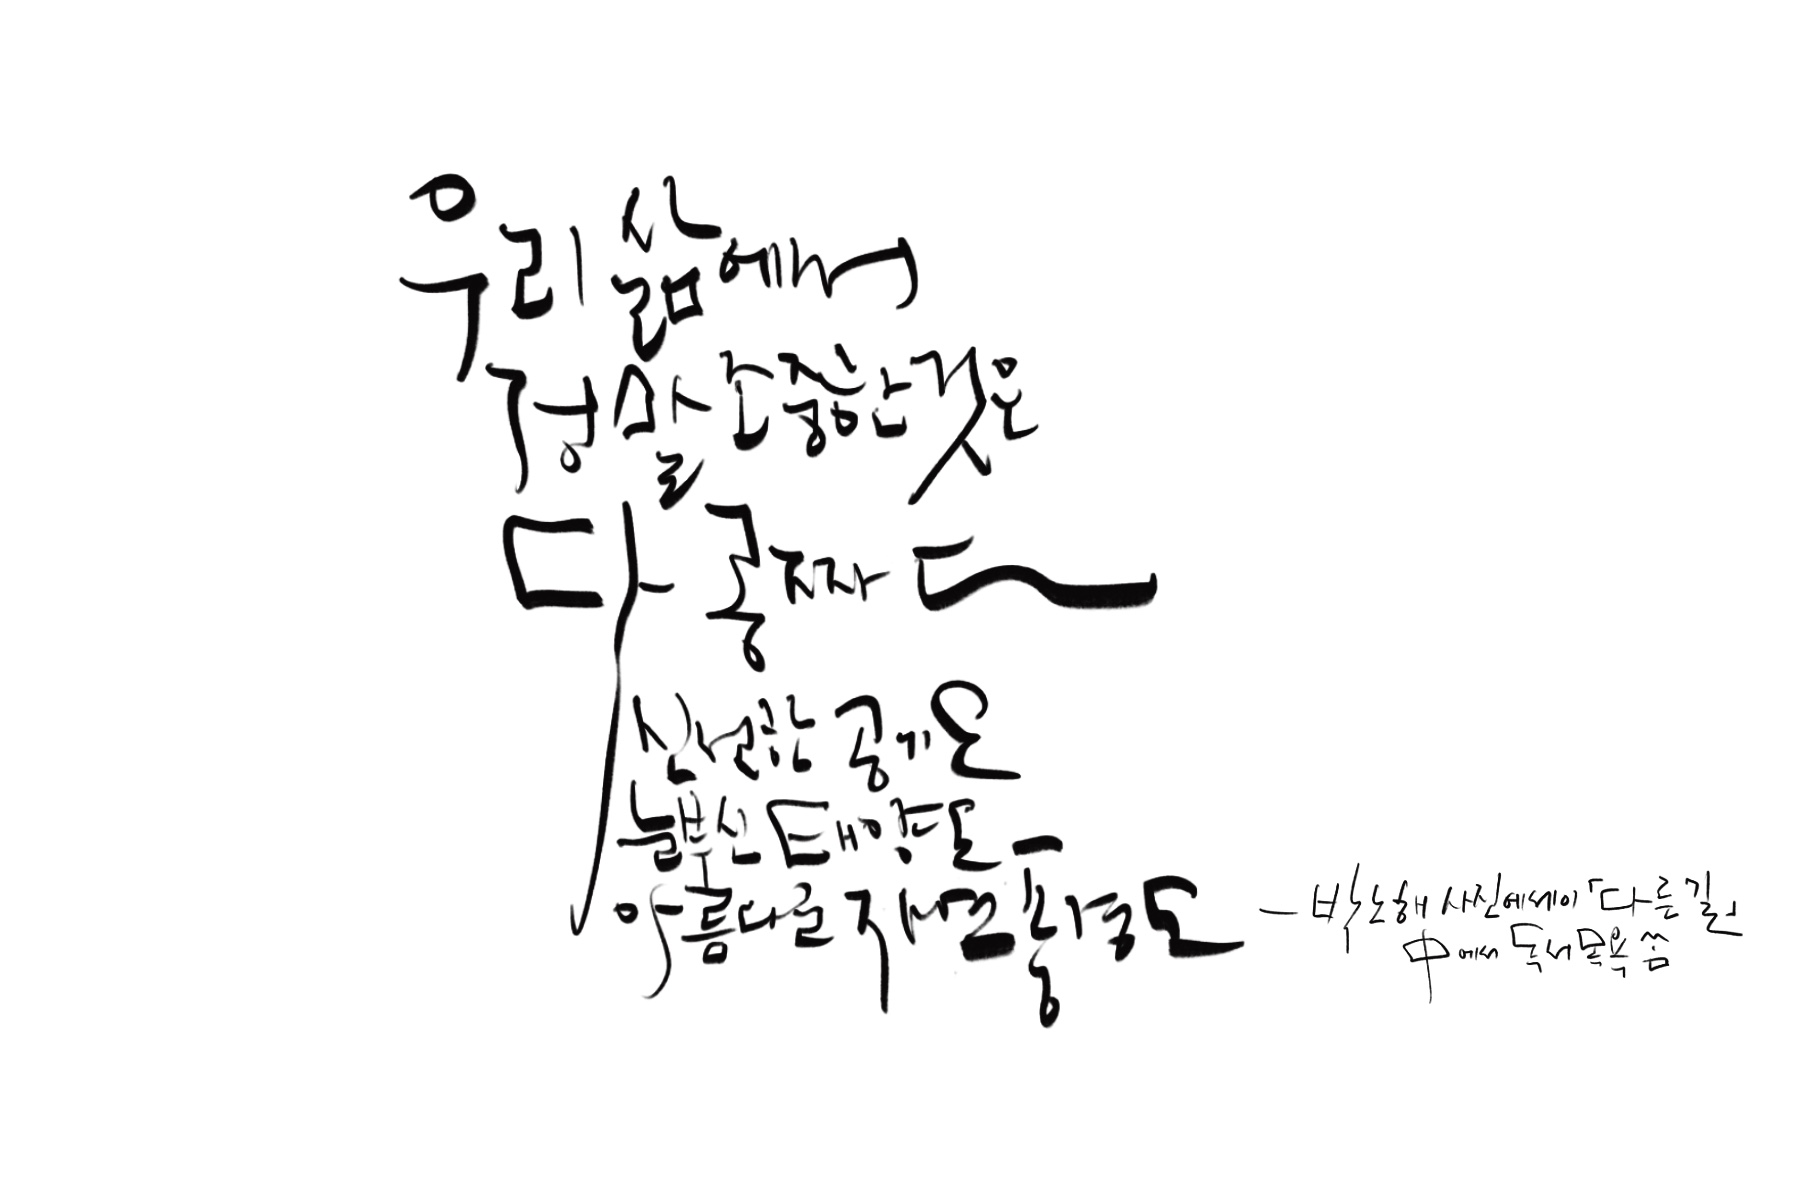 우리 삶에서
정말 소중한 것은
다 공짜다
신선한 공기도
눈부신 태양도
아름다운 자연 풍경도
- 박노해 사진에세이 「다른 길」
中에서 독서목욕 씀